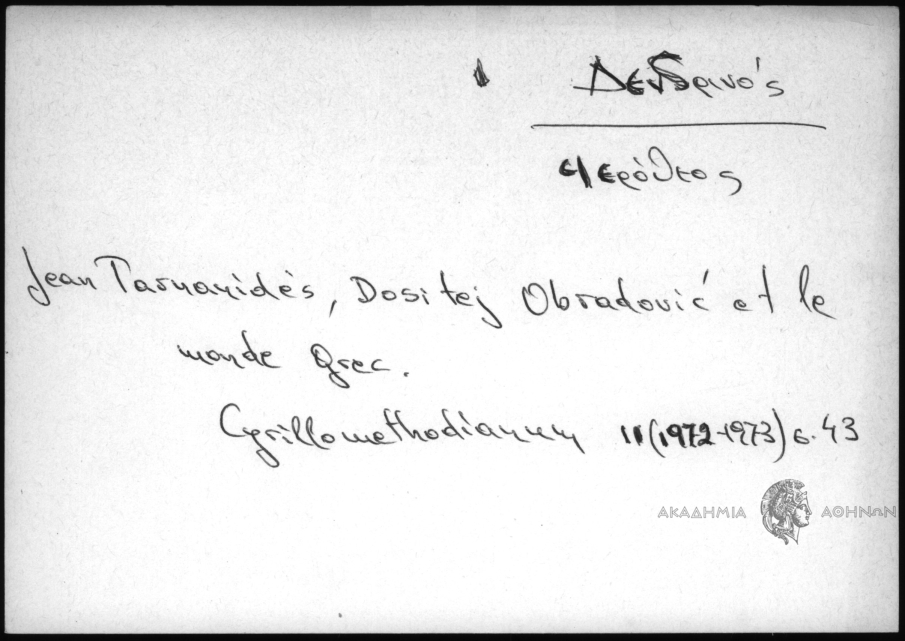 Δενδρινός
Ιερόθεος
Jean Tarnanidès, Dositej Obradović et le
monde Grec.
Cyrillomethodianum II (1972-1973) σ. 43
ΑΚΑΔΗΜΙΑ ΑΘΗΝΩΝ